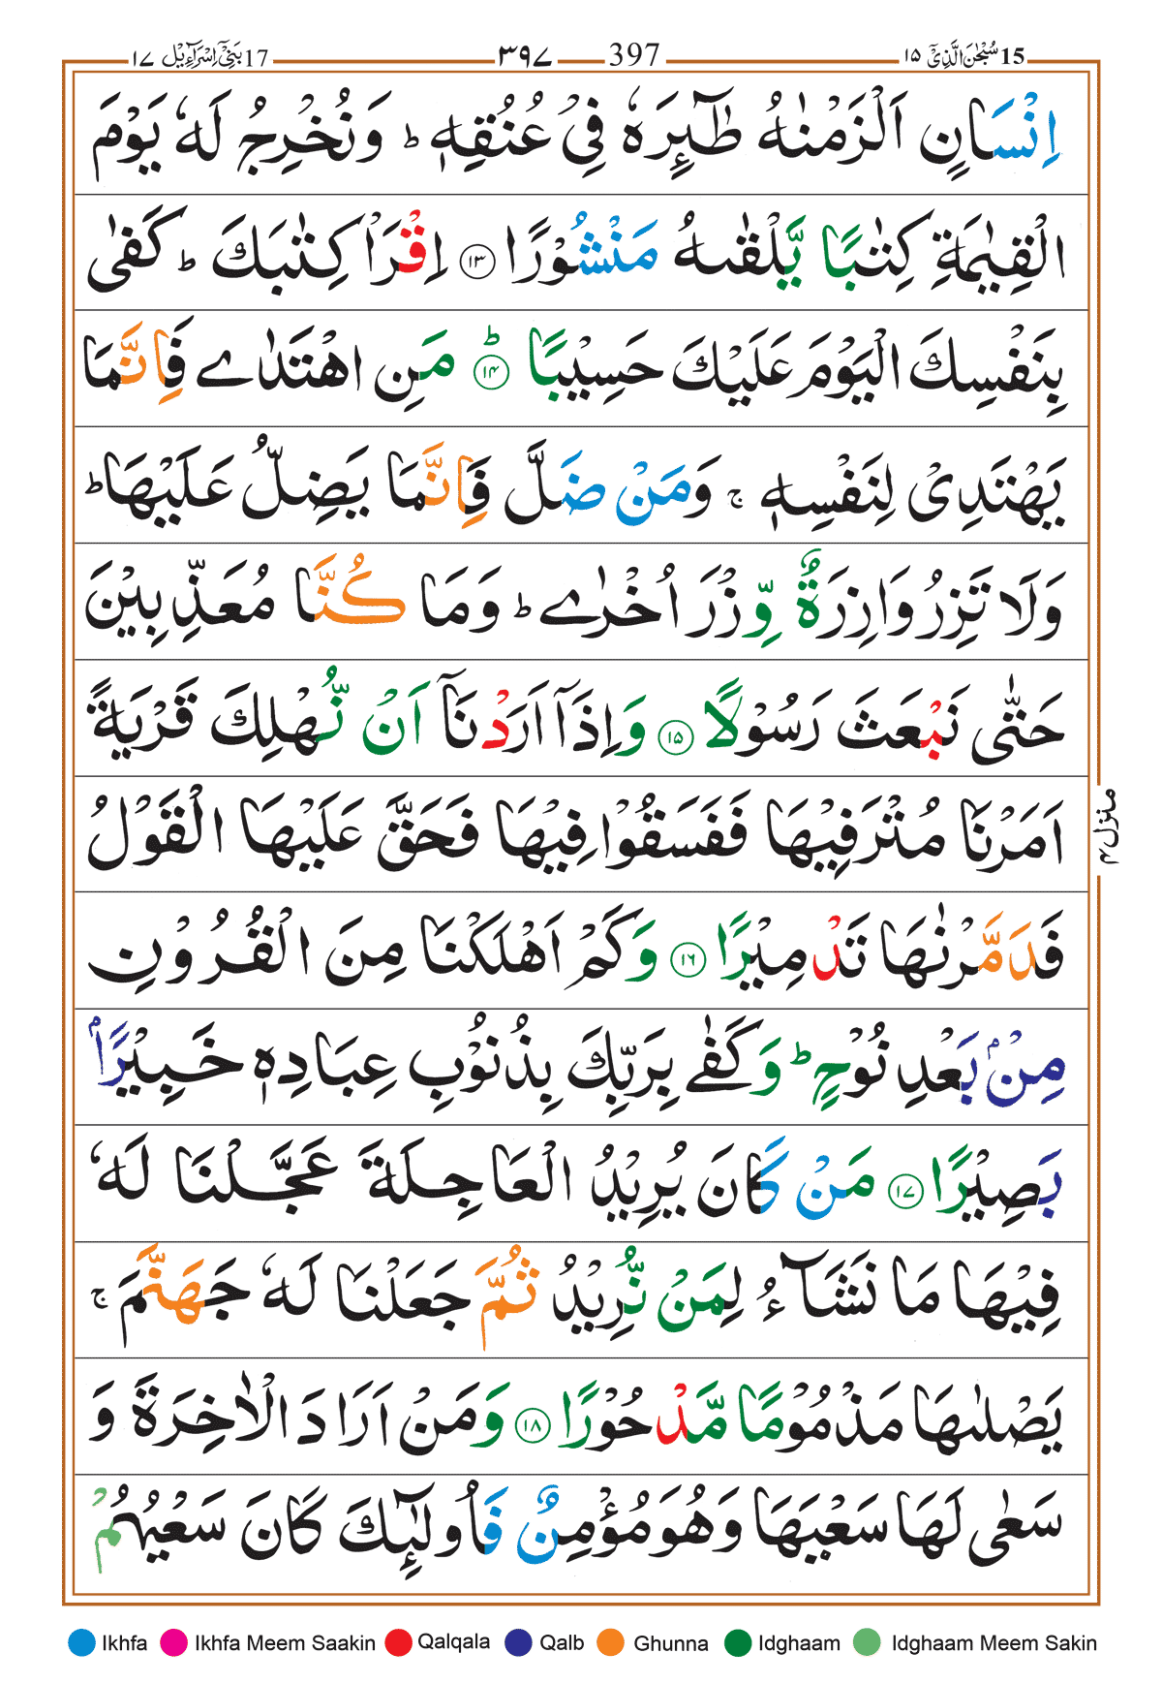 15 سُبْحٰنَ الَّذِيْٓ ١٥ 397 ٣٩٧ 17 بَنِيْٓ اِسْرَآءِيْل ١٧
اِنْسَانٍ اَلْزَمْنٰهُ طٰٓئِرَهٗ فِيْ عُنُقِهٖ ؕ وَنُخْرِجُ لَهٗ يَوْمَ
الْقِيٰمَةِ كِتٰبًا يَّلْقٰىهُ مَنْشُوْرًا ۝١٣ اِقْرَاْ كِتٰبَكَ ؕ كَفٰى
بِنَفْسِكَ الْيَوْمَ عَلَيْكَ حَسِيْبًا ؕ۝١٤ مَنِ اهْتَدٰے فَاِنَّمَا
يَهْتَدِيْ لِنَفْسِهٖ ۚ وَمَنْ ضَلَّ فَاِنَّمَا يَضِلُّ عَلَيْهَا ؕ
وَلَا تَزِرُ وَازِرَةٌ وِّزْرَ اُخْرٰے ؕ وَمَا كُنَّا مُعَذِّبِيْنَ
حَتّٰى نَبْعَثَ رَسُوْلًا ۝١٥ وَاِذَآ اَرَدْنَآ اَنْ نُّهْلِكَ قَرْيَةً
اَمَرْنَا مُتْرَفِيْهَا فَفَسَقُوْا فِيْهَا فَحَقَّ عَلَيْهَا الْقَوْلُ
فَدَمَّرْنٰهَا تَدْمِيْرًا ۝١٦ وَكَمْ اَهْلَكْنَا مِنَ الْقُرُوْنِ
مِنْۢ بَعْدِ نُوْحٍ ؕ وَكَفٰے بِرَبِّكَ بِذُنُوْبِ عِبَادِهٖ خَبِيْرًاۢ
بَصِيْرًا ۝١٧ مَنْ كَانَ يُرِيْدُ الْعَاجِلَةَ عَجَّلْنَا لَهٗ
فِيْهَا مَا نَشَآءُ لِمَنْ نُّرِيْدُ ثُمَّ جَعَلْنَا لَهٗ جَهَنَّمَ ۚ
يَصْلٰىهَا مَذْمُوْمًا مَّدْحُوْرًا ۝١٨ وَمَنْ اَرَادَ الْاٰخِرَةَ وَ
سَعٰى لَهَا سَعْيَهَا وَهُوَ مُؤْمِنٌ فَاُولٰٓئِكَ كَانَ سَعْيُهُمْ
منزل ۴
Ikhfa Ikhfa Meem Saakin Qalqala Qalb Ghunna Idghaam Idghaam Meem Sakin